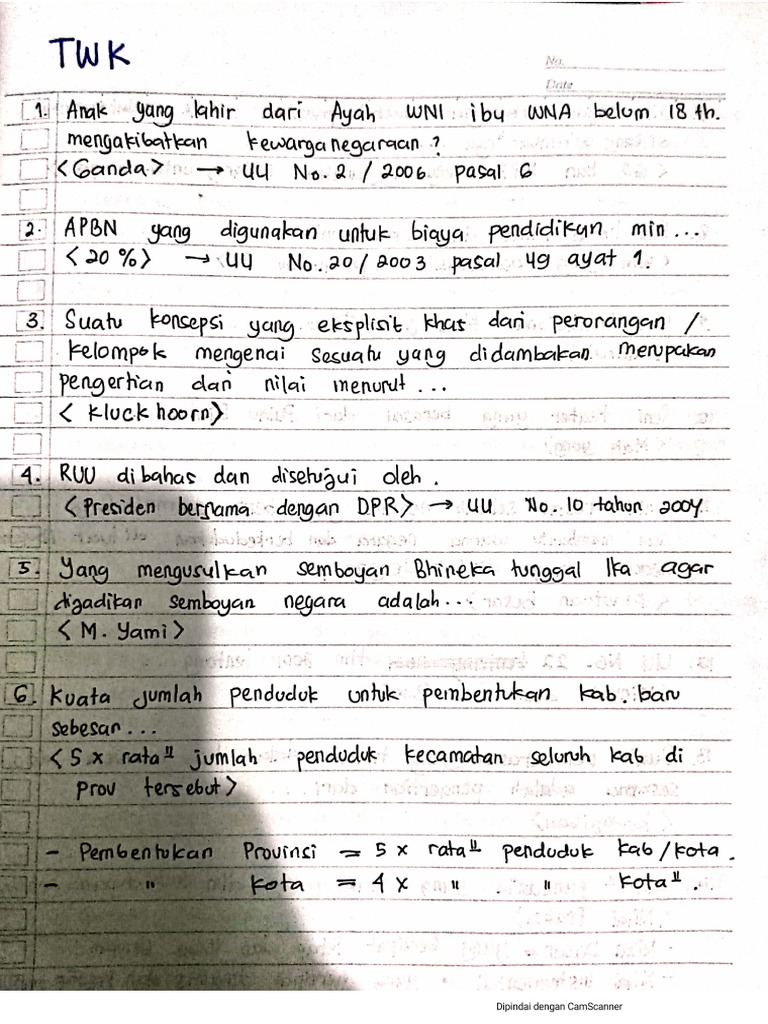 TWK
No.
Date
1. Anak yang lahir dari Ayah WNI ibu WNA belum 18 th.
mengakibatkan kewarganegaraan?
<Ganda> → UU No. 2 / 2006 pasal 6
2. APBN yang digunakan untuk biaya pendidikan min ...
<20 %> → UU No. 20 / 2003 pasal 49 ayat 1.
3. Suatu konsepsi yang eksplisit khas dari perorangan /
kelompok mengenai sesuatu yang didambakan merupakan
pengertian dari nilai menurut ...
< Kluck hoorn>
4. RUU dibahas dan disetujui oleh.
<Presiden bersama dengan DPR> → UU No. 10 tahun 2004.
5. Yang mengusulkan semboyan Bhineka tunggal Ika agar
dijadikan semboyan negara adalah ...
< M. Yami>
6. Kuata jumlah penduduk untuk pembentukan kab. baru
sebesar ...
<5 x rata" jumlah penduduk kecamatan seluruh kab di
prov tersebut>
- Pembentukan Provinsi = 5 x rata" penduduk kab/kota.
- " kota = 4 x " " kota".
Dipindai dengan CamScanner